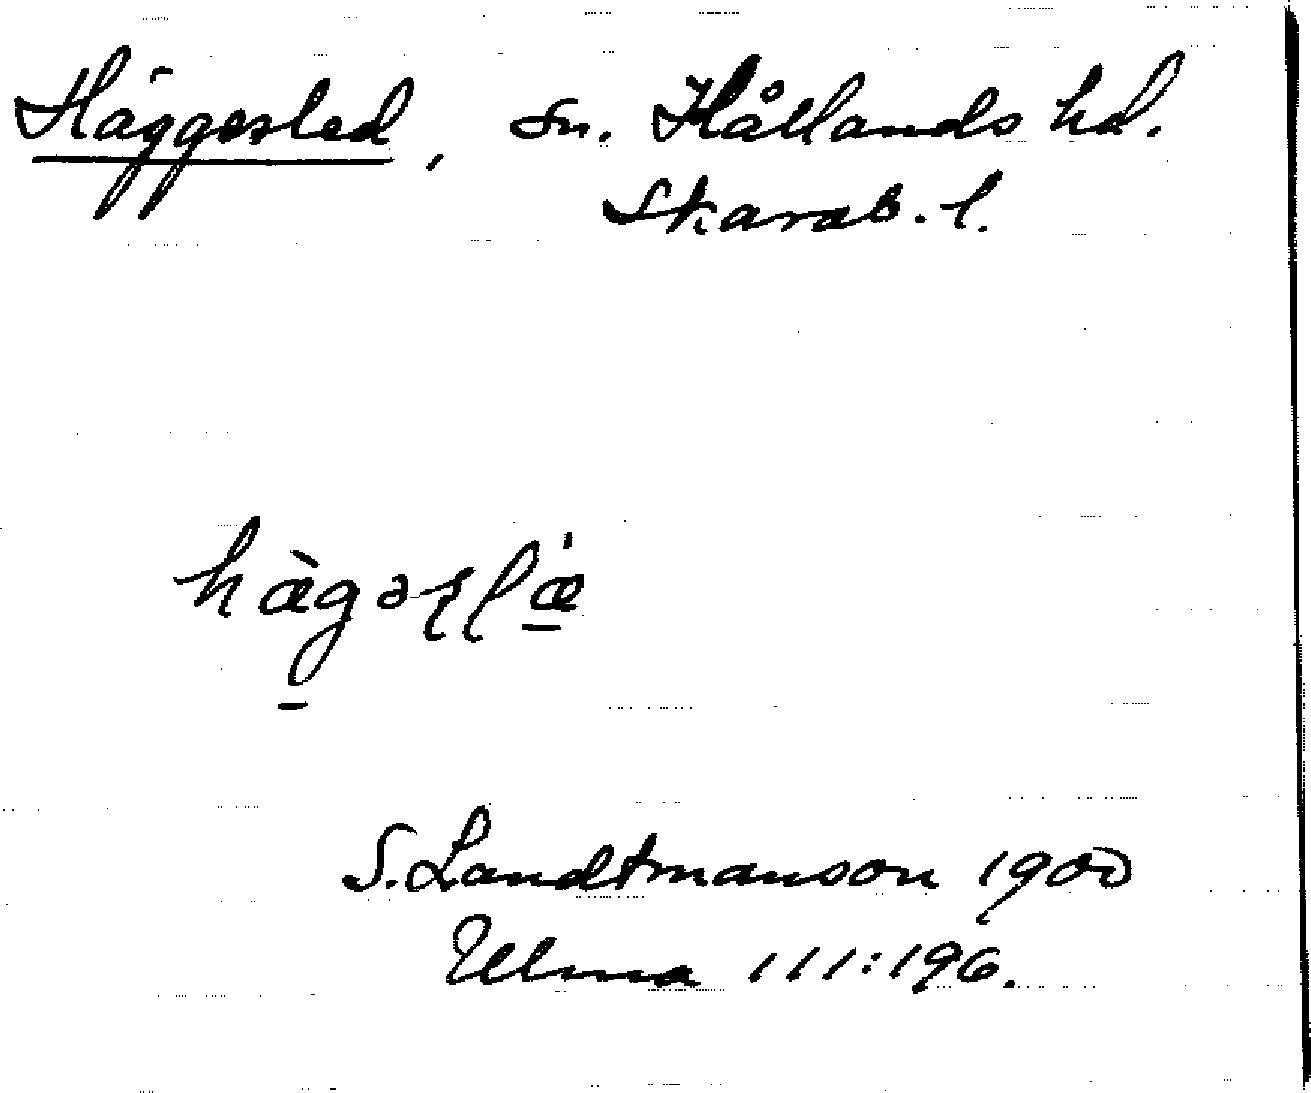 Häggesled, sn. Kållands hd.
Skarab. l.
S. Landtmanson 1900
Ulma 111:196.